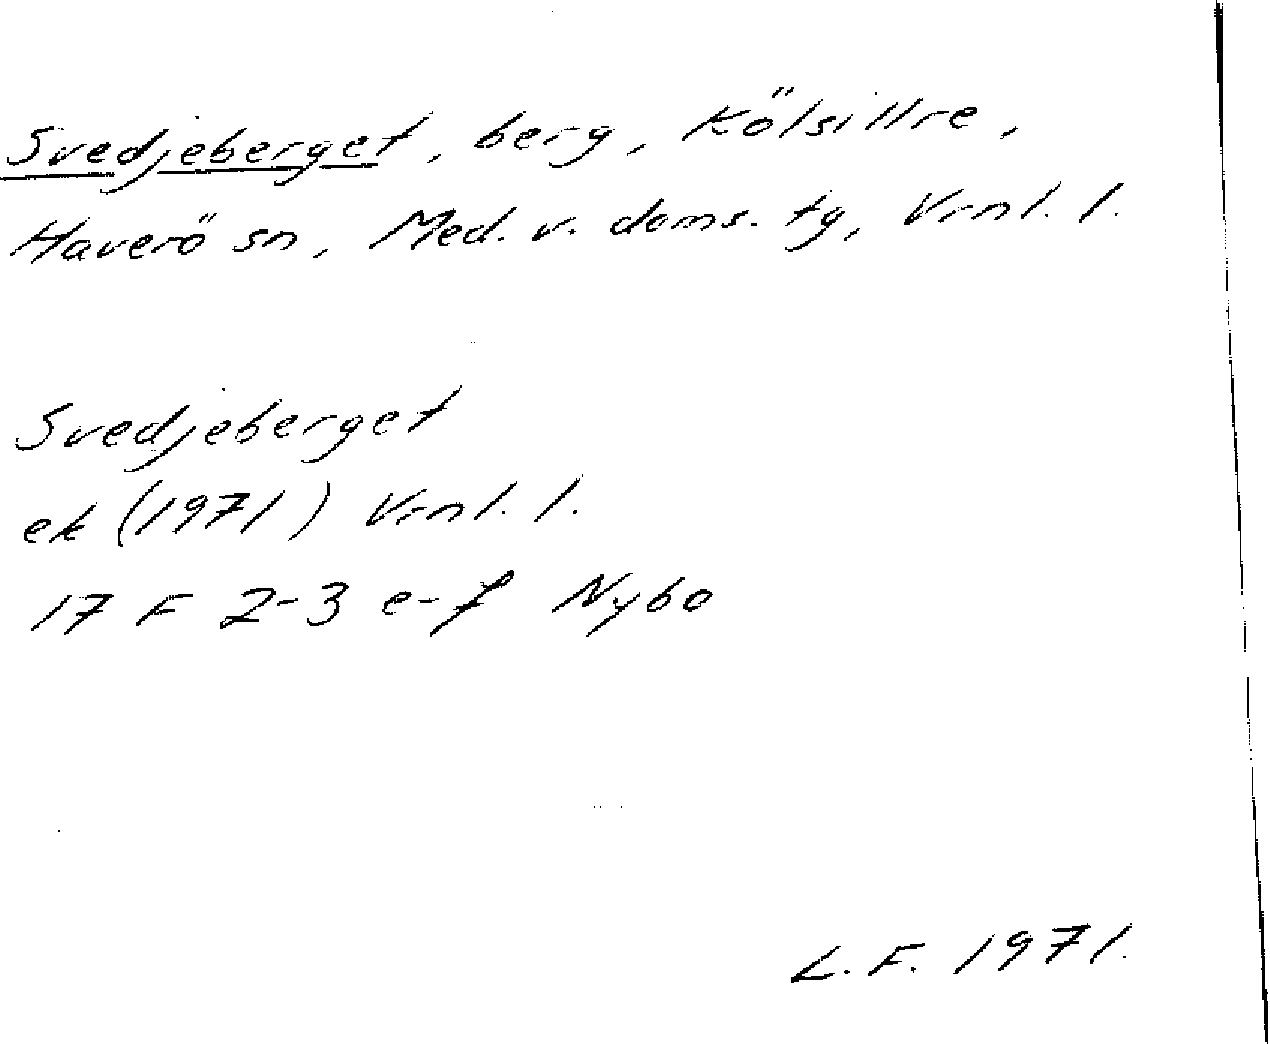 Svedjeberget, berg, Kölsillre,
Haverö sn, Med. v. doms. tg, Vrnl. l.
Svedjeberget
ek (1971) Vrnl. l.
17 F 2-3 e-f Nybo
L. F. 1971.